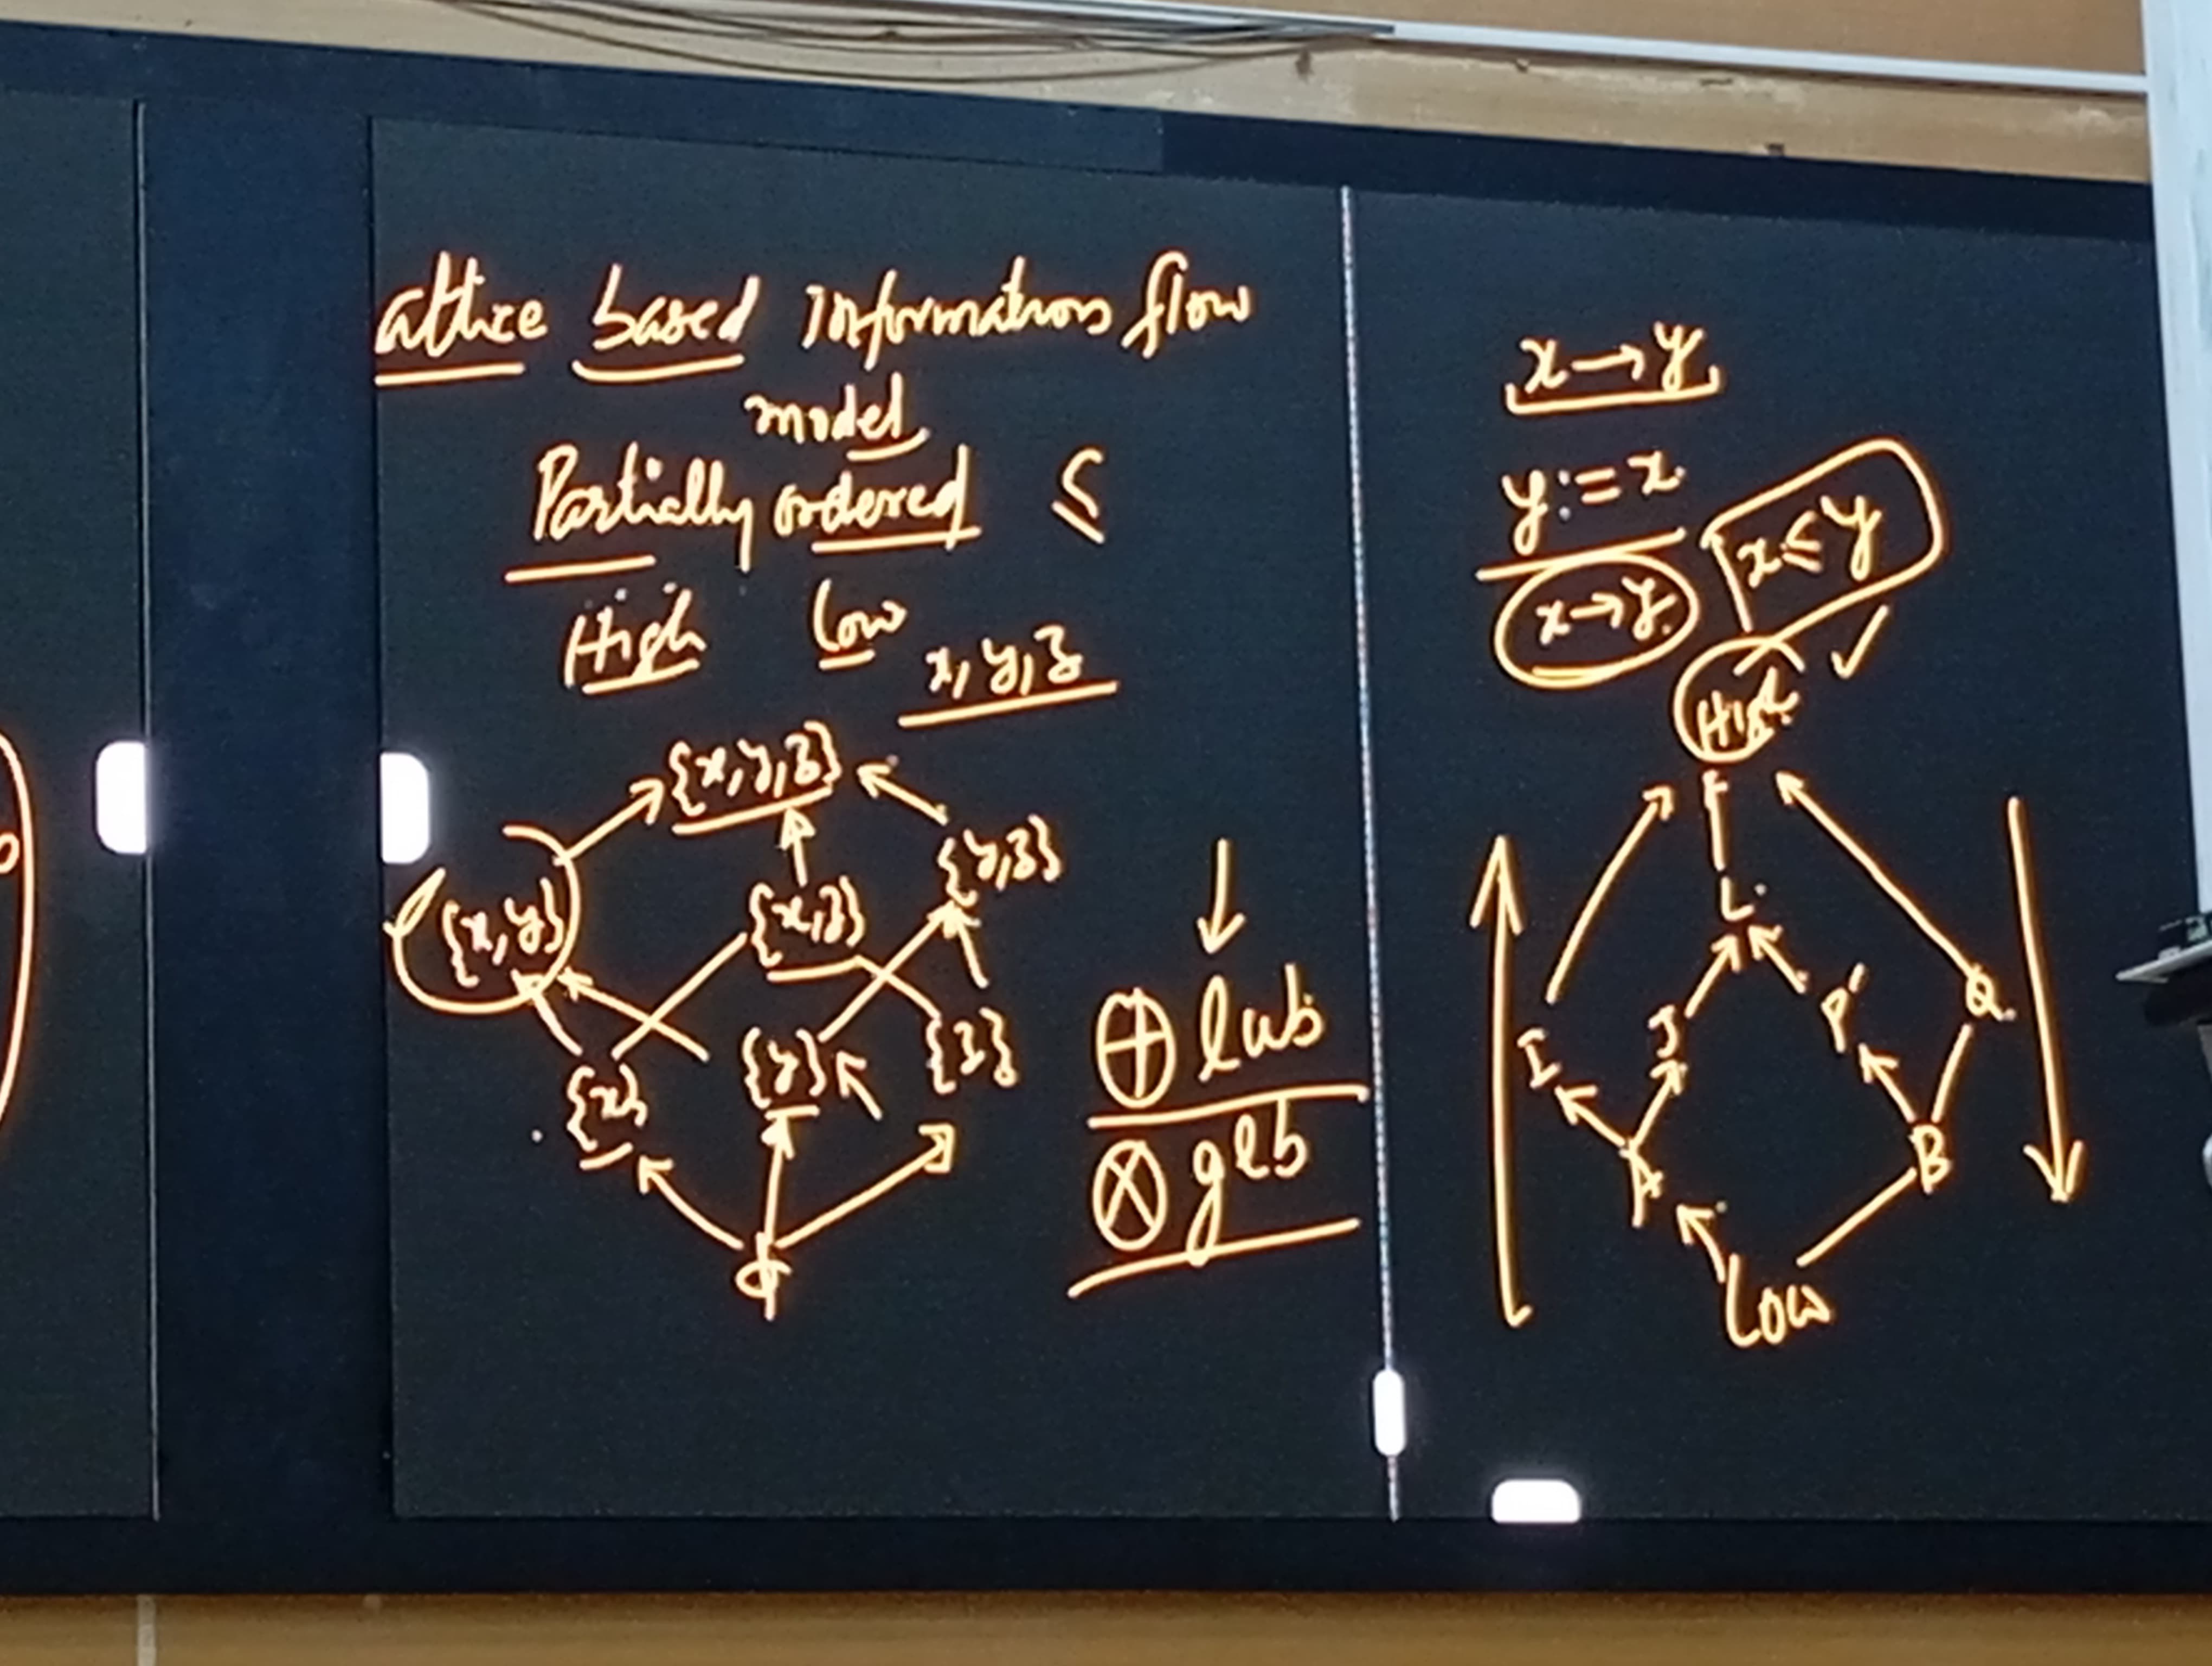 attice based Information flow
model
Partially ordered ≤
High Low
x, y, z
{x, y, z}
{x, y} {x, z} {y, z}
{x} {y} {z}
φ
⊕ lub
⊗ glb
x → y
y := x
x → y x ≤ y
High
L
I J P Q
A B
Low